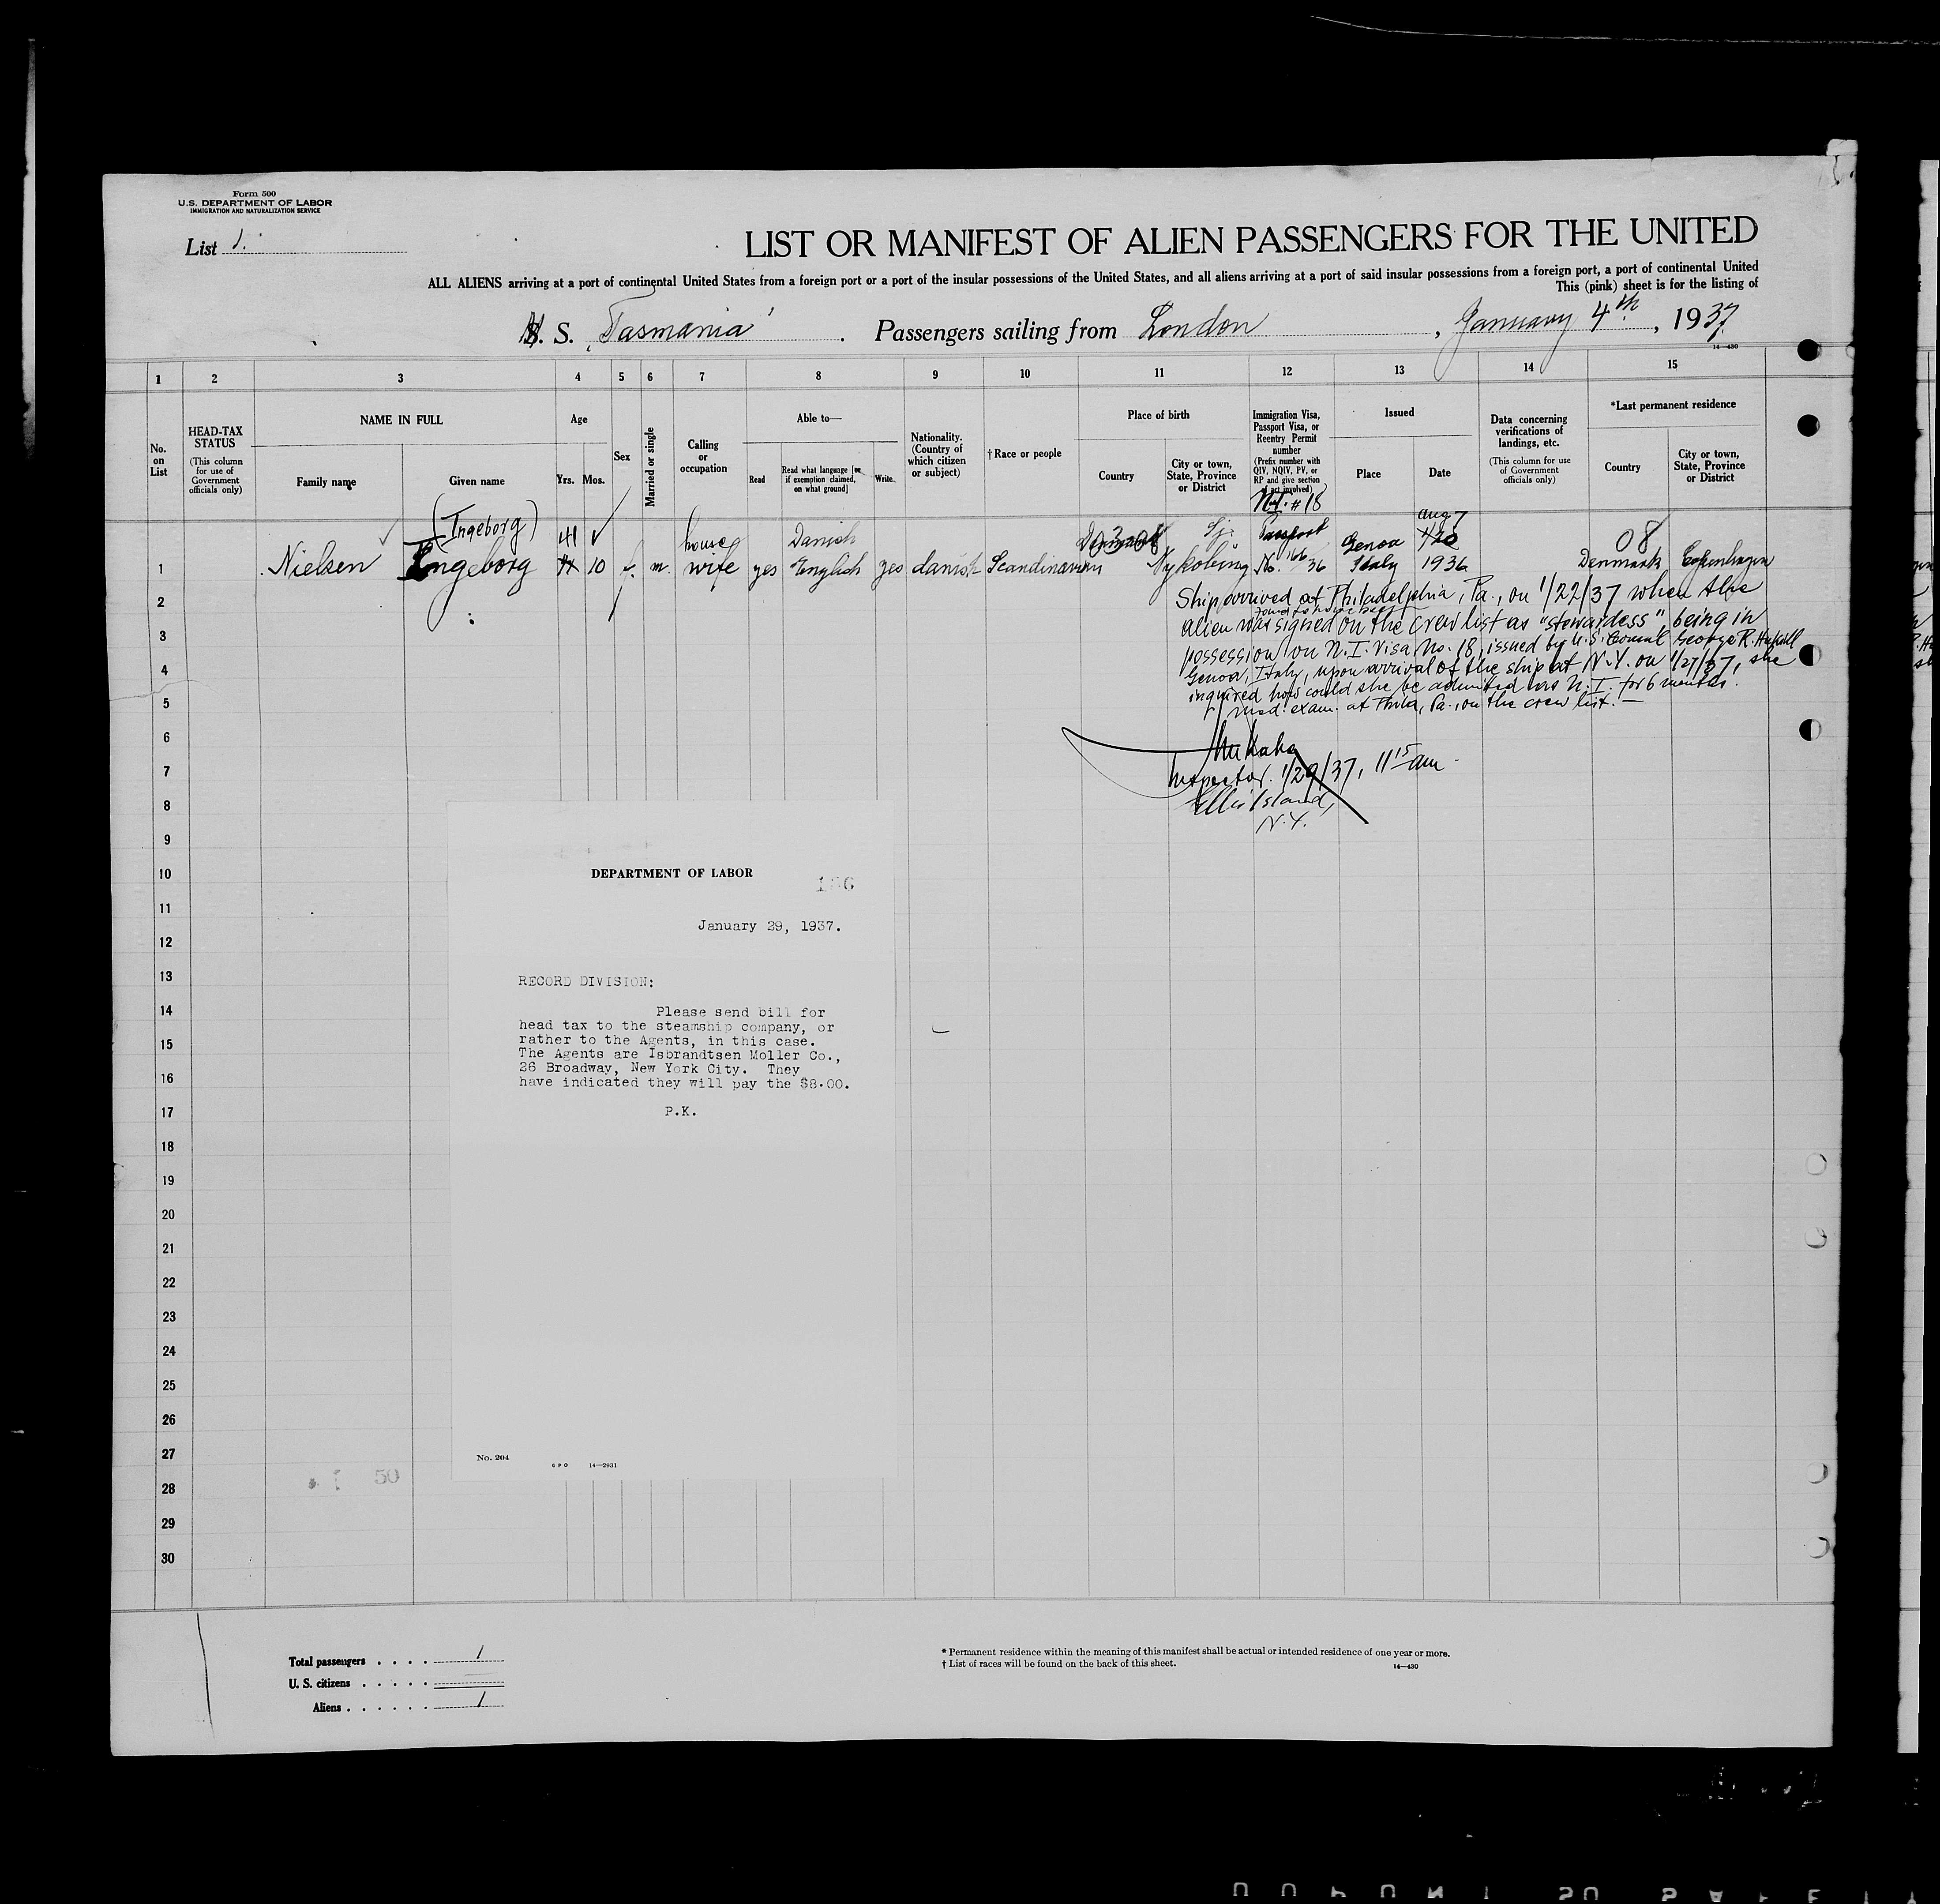 Form 500
U.S. DEPARTMENT OF LABOR
IMMIGRATION AND NATURALIZATION SERVICE
List 1.
LIST OR MANIFEST OF ALIEN PASSENGERS FOR THE UNITED
ALL ALIENS arriving at a port of continental United States from a foreign port or a port of the insular possessions of the United States, and all aliens arriving at a port of said insular possessions from a foreign port, a port of continental United
This (pink) sheet is for the listing of
S. "Tasmania". Passengers sailing from London, January 4th, 1937
14—430
1 2 3 4 5 6 7 8 9 10 11 12 13 14 15
No. on List
HEAD-TAX STATUS
(This column for use of Government officials only)
NAME IN FULL
Family name
Given name
Age
Yrs. Mos.
Sex
Married or single
Calling or occupation
Able to—
Read
Read what language [or if exemption claimed, on what ground]
Write
Nationality. (Country of which citizen or subject)
† Race or people
Place of birth
Country
City or town, State, Province or District
Immigration Visa, Passport Visa, or Reentry Permit number
(Prefix number with QIV, NQIV, PV, or RP and give section of act involved)
Issued
Place
Date
Data concerning verifications of landings, etc.
(This column for use of Government officials only)
*Last permanent residence
Country
City or town, State, Province or District
N.I. #18
(Ingeborg) 41 house Danish Denmark Passport Genoa Aug 7 08
1 Nielsen Ingeborg 10 f. m. wife yes English yes danish Scandinavian Nykobing No. 166/36 Italy 1936 Denmark Copenhagen
2 Ship arrived at Philadelphia, Pa., on 1/22/37 when the
found to have been
3 alien was signed on the crew list as "stewardess", being in
possession on N.I. Visa No. 18, issued by U.S. Consul George R. Hukill
4 Genoa, Italy, upon arrival of the ship at N.Y. on 1/27/37, she
inquired how could she be admitted as N.I. for 6 months.
5 med. exam. at Phila, Pa., on the crew list. —
6
7 Inspector. 1/29/37, 11 15 am.
8 Ellis Island,
9 N.Y.
10
11
12
13
14
15
16
17
18
19
20
21
22
23
24
25
26
27
28
29
30
DEPARTMENT OF LABOR
January 29, 1937.
RECORD DIVISION:
Please send bill for
head tax to the steamship company, or
rather to the Agents, in this case.
The Agents are Isbrandtsen Moller Co.,
26 Broadway, New York City. They
have indicated they will pay the $8.00.
P.K.
No. 204
GPO 14—2931
50
Total passengers . . . . 1
U. S. citizens . . . . .
Aliens . . . . . . 1
* Permanent residence within the meaning of this manifest shall be actual or intended residence of one year or more.
† List of races will be found on the back of this sheet.
14—430